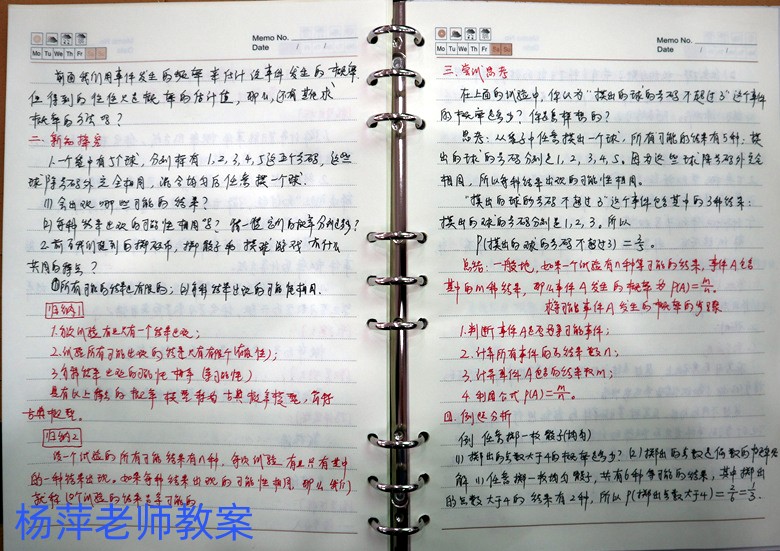 Memo No.
Date / /
Mo Tu We Th Fr Sa Su
前面我们用事件发生的频率来估计该事件发生的概率,
但得到的往往只是概率的估计值,那么,还有其他求
概率的方法吗?
二、新知探究
1.一个盒中有5个球,分别标有1,2,3,4,5这五个号码,这些
球除号码外完全相同,混合均匀后任意摸一个球.
(1)会出现哪些可能的结果?
(2)每种结果出现的可能性相同吗?猜一猜它们的概率分别是多少?
2.前面我们提到的抛硬币,掷骰子和摸球游戏有什么
共同的特点?
①所有可能的结果是有限的;(2)每种结果出现的可能性相同.
归纳1
1.每次试验有且只有一个结果出现;
2.试验所有可能出现的结果只有有限个(有限性);
3.每种结果出现的可能性相等(等可能性)
具有以上特点的概率模型称为古典概率模型,简称
古典概型.
归纳2
设一个试验的所有可能结果有n种,每次试验有且只有其中
的一种结果出现。如果每种结果出现的可能性相同,那么我们
就称这个试验的结果是等可能的
杨萍老师教案
Memo No.
Date / /
Mo Tu We Th Fr Sa Su
三、尝试思考
在上面的试验中,你认为“摸出的球的号码不超过3”这个事件
的概率是多少?你是怎样想的?
思考:从盒子中任意摸出一个球,所有可能的结果有5种:摸
出的球的号码分别是1,2,3,4,5。因为这些球除号码外完全
相同,所以每种结果出现的可能性相同。
“摸出的球的号码不超过3”这个事件包含其中的3种结果:
摸出的球的号码分别是1,2,3。所以
P(摸出的球的号码不超过3)=3/5。
总结:一般地,如果一个试验有n种等可能的结果,事件A包含
其中的m种结果,那么事件A发生的概率为P(A)=m/n。
求等可能事件A发生的概率的步骤
1.判断事件A是否为等可能事件;
2.计算所有事件的总结果数n;
3.计算事件A包含的结果数m;
4.利用公式P(A)=m/n。
四.例题分析
例 任意掷一枚骰子(均匀)
(1)掷出的点数大于4的概率是多少?(2)掷出的点数是偶数的概率是
解(1)任意掷一枚均匀骰子,共有6种等可能的结果,其中掷出
的点数大于4的结果有2种,所以P(掷出点数大于4)=2/6=1/3.